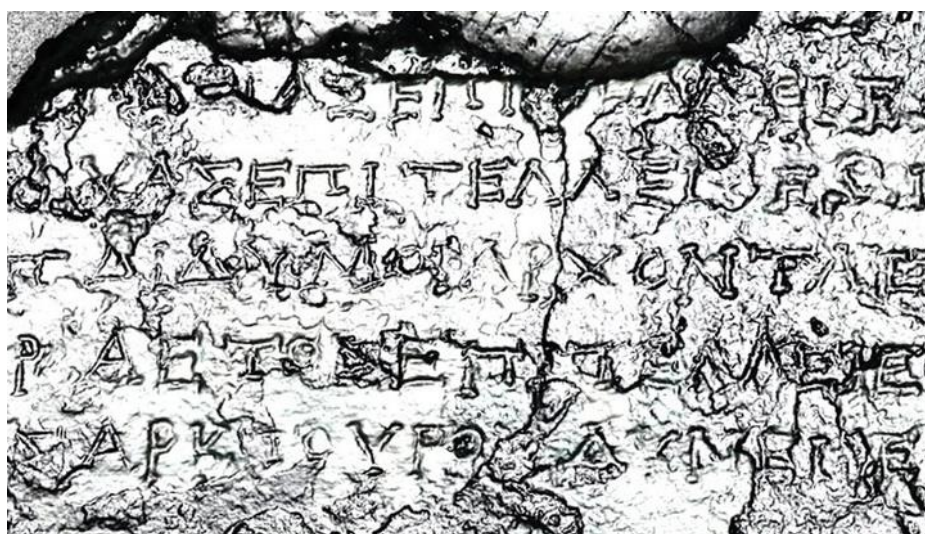 ΑΣΕΠΙΤΕΛΛΕΙΕ
ΥΑΣΕΠΙΤΕΛΛΕΙΕΩΙ
ΔΙΔΥΜΟΙΑΡΧΟΝΤΑΙΕ
ΑΕΤΟΣΕΠΙΤΕΛΛΕΙΕ
ΑΡΚΤΟΥΡΟΣΔΥΝΕΙΕ